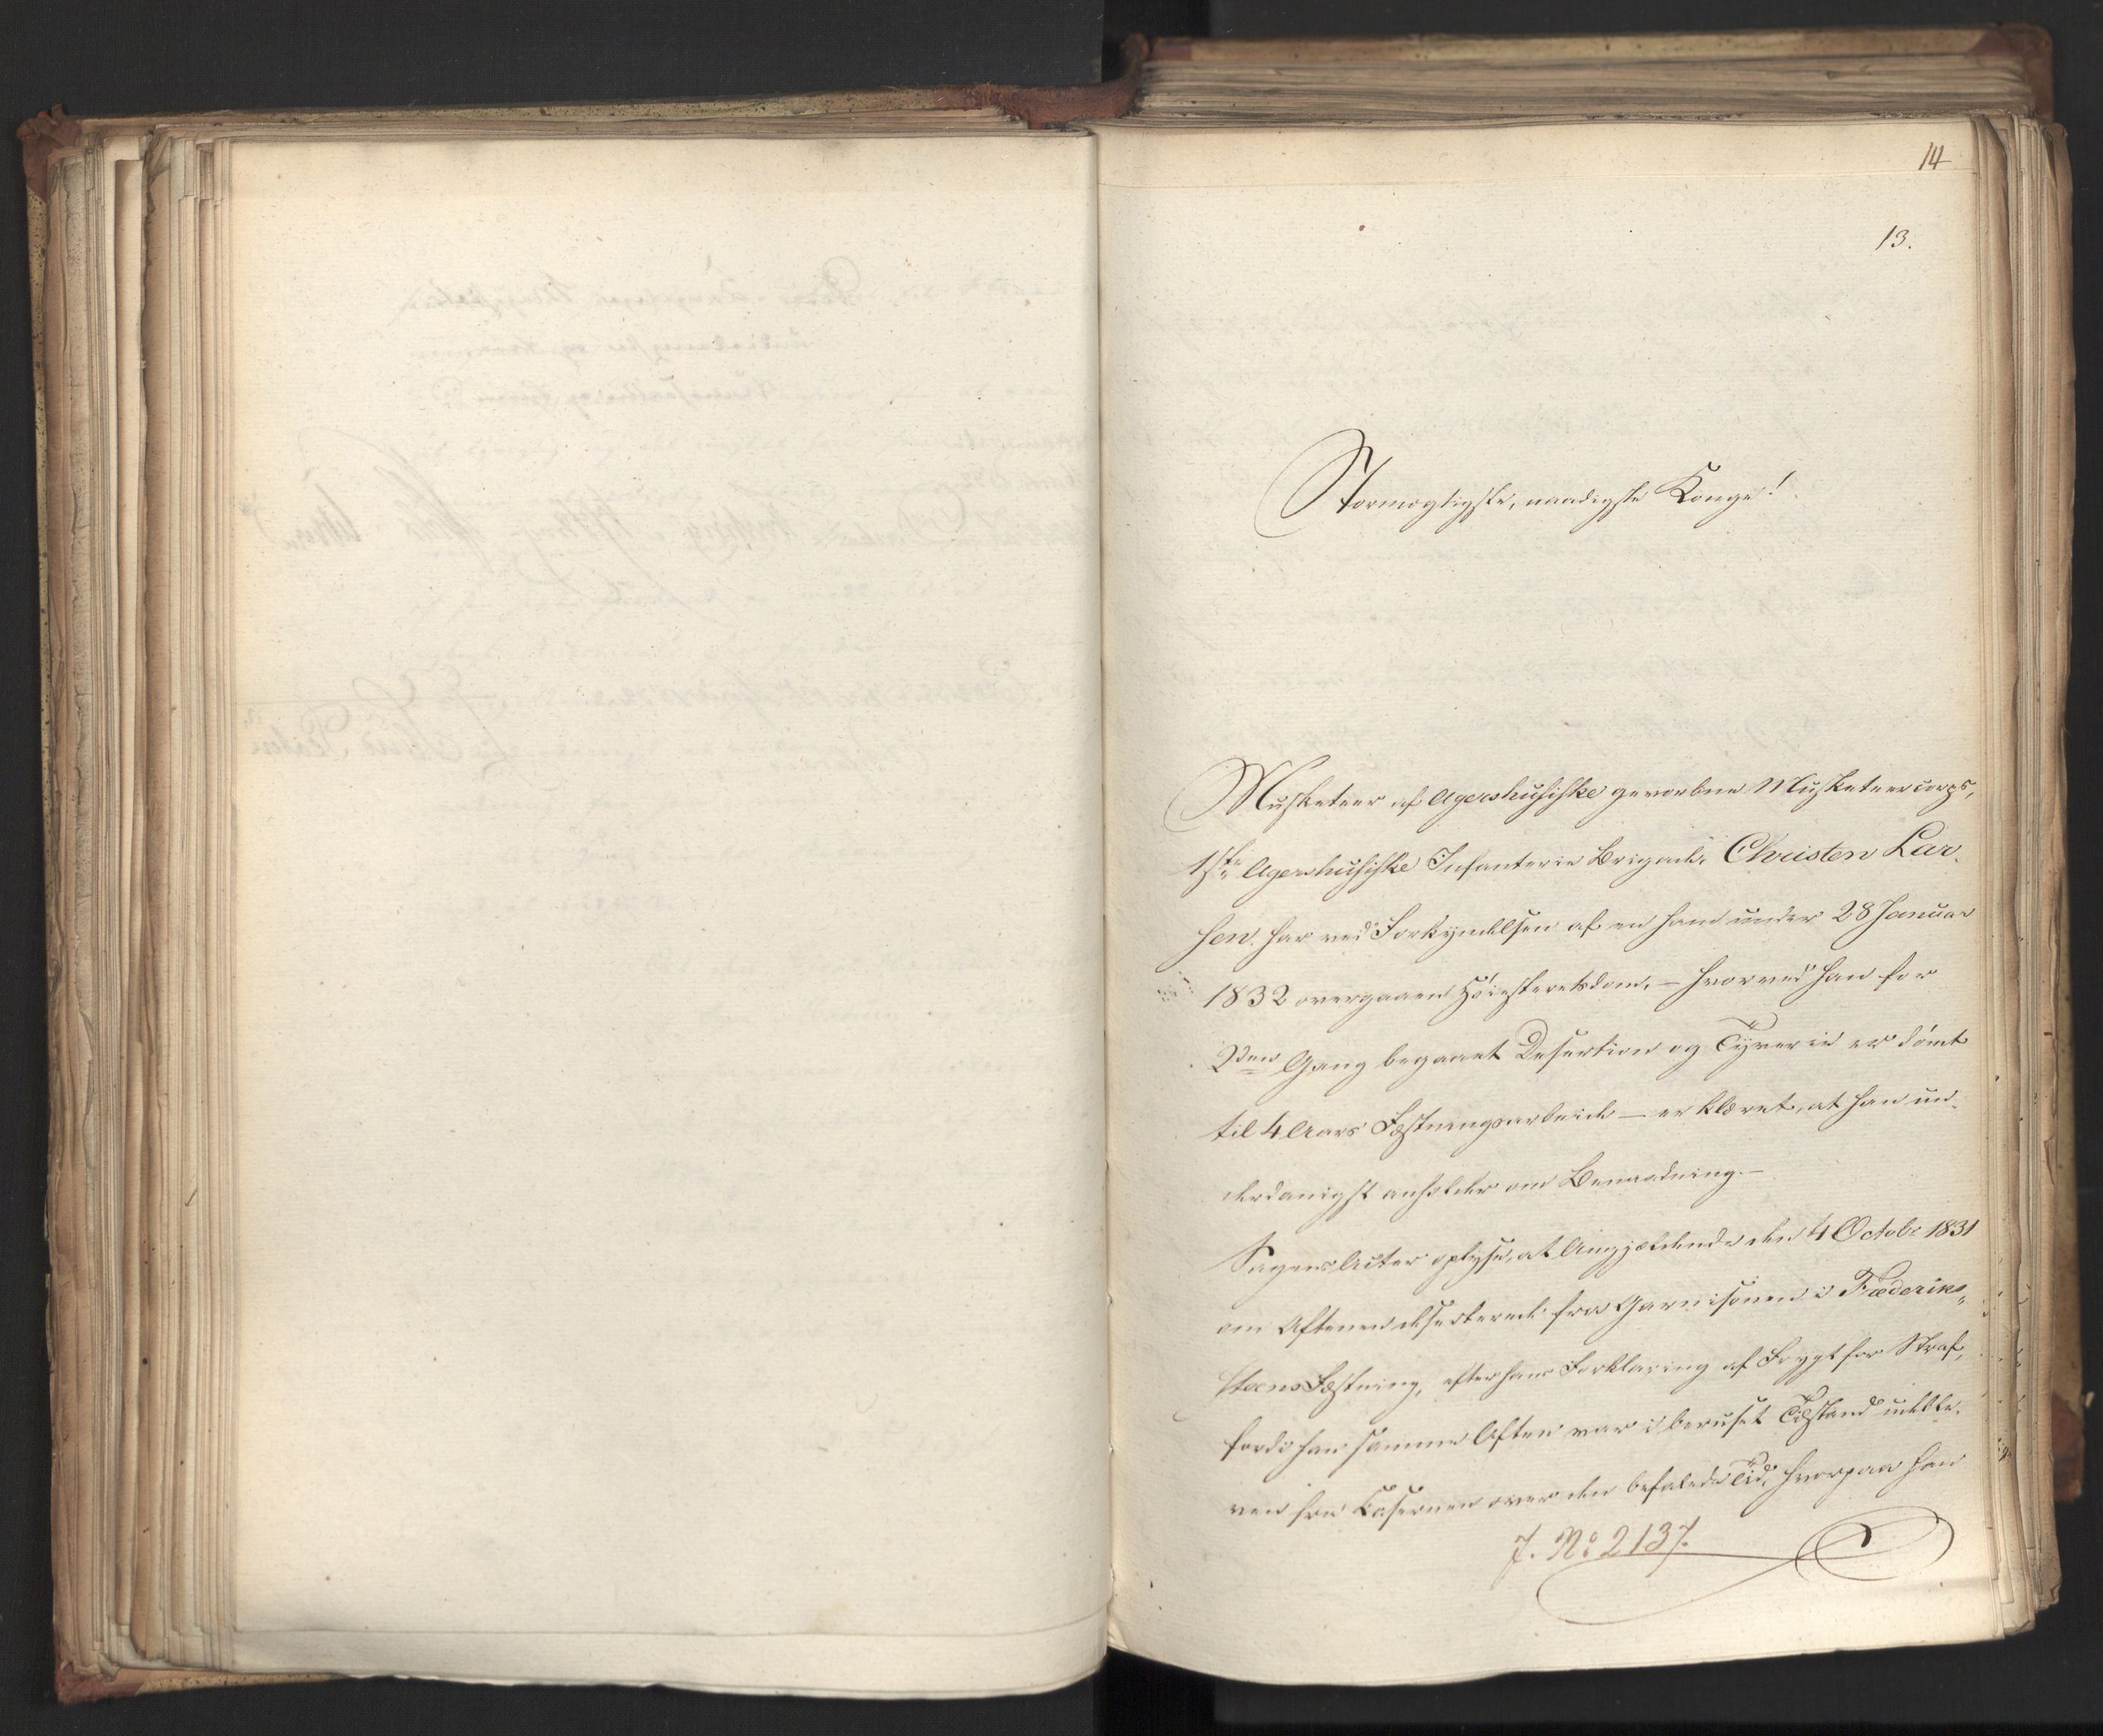 14
13.
Stormægtigste, naadigste Konge!
Musketeer af Agershusiske gevorbne Musketeercorps,
1ste Agershusiske Infanterie Brigade Christen Lar-
sen har ved Forkyndelsen af en ham under 28 Januar
1832 overgaaen Høiesteretsdom, – hvorved han for
2den Gang begaaet Desertion og Tyverie er dømt
til 4 Aars Fæstningsarbeide – erklæret, at han un-
derdanigst anholder om Benaadning. –
Sagens Acter oplyse, at Angjældende den 4 Octobr 1831
om Aftenen deserterede fra Garnisonen i Frederik-
steens Fæstning, efter hans Forklaring af Frygt for Straf,
fordi han samme Aften var i beruset Tilstand udeble-
ven fra Casernen over den befalede Tid, hvorpaa han
J. No 2137.